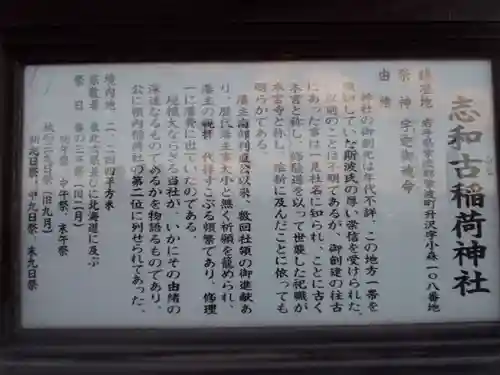 志和古稲荷神社
鎮座地 岩手県紫波郡紫波町升沢字小森一〇八番地
祭神 宇迦之御魂命
由緒
神社の御創始は年代不詳、この地方一帯を
領知していた斯波氏の厚い崇信を受けられた
以前のことは不明であるが、御創建の往古
にあった事は一見社名に知られ、ことに古く
本宮と称し、修験道を以って世襲した祀職が
本宮寺と称し、維新に及んだことに依っても
明らかである。
藩主南部利直公以来、数回社領の御進献あ
り、歴代主事大小と無く祈願を籠められ、
藩主の親拝、代拝すこぶる頻繁であり、修理
一に藩費に出ていたのである。
規模大ならざる当社が、いかにその由緒の
深遠なるものであるかを物語るものであり、
公に領内稲荷社の第二位に列せられてあった。
境内地 二、二四四平方米
崇敬者 東北六県並びに北海道に及ぶ
祭日 春の三午祭(旧二月)
初午祭、中午祭、末午祭
秋の三九日祭(旧九月)
初九日祭、中九日祭、末九日祭